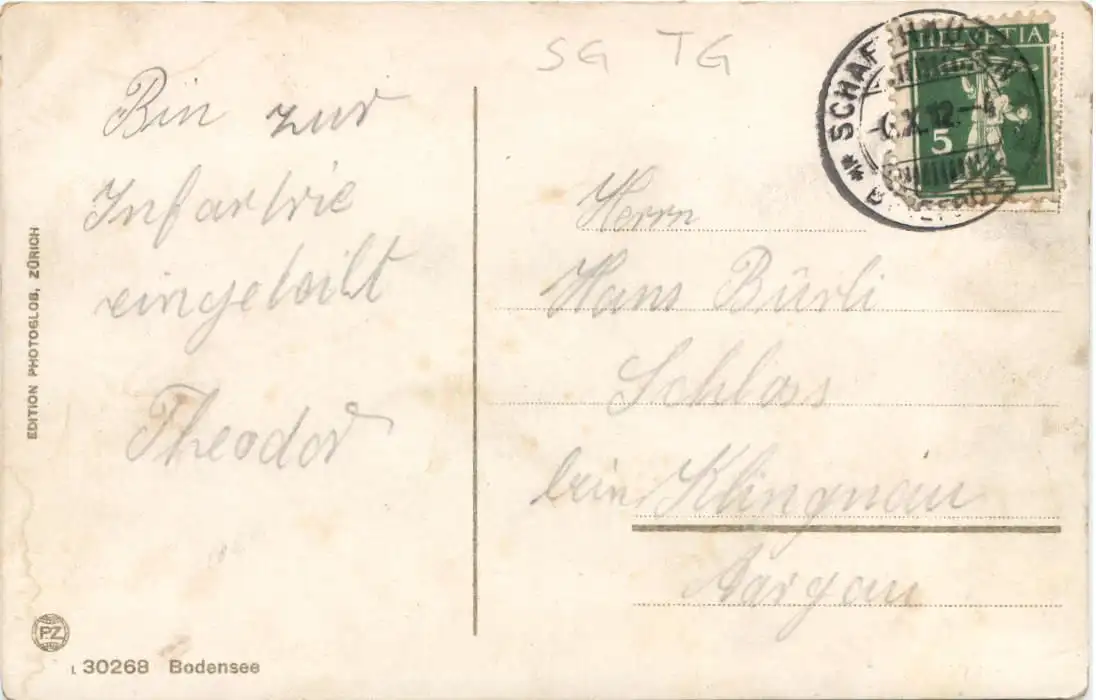 SG TG
Bin zur
Infantrie
eingeteilt
Theodor
EDITION PHOTOGLOB, ZÜRICH
PZ
L 30268 Bodensee
HELVETIA
5
SCHAFFHAUSEN
6.X.12.-4
Herrn
Hans Bürli
Schloss
beim Klingnau
Aargau